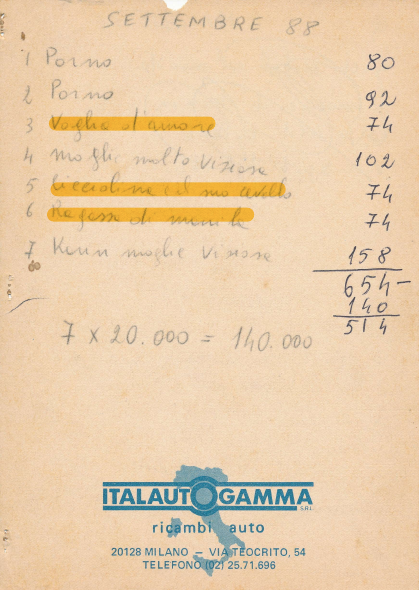 SETTEMBRE 88
1 Porno 80
2 Porno 92
3 Voglia d'amore 74
4 Mogli molto viziose 102
5 Cicciolina ed suo cavallo 74
6 Ragazze di manila 74
7 moglie viziosa 158
654-
140
514
7 x 20.000 = 140.000
ITALAUTOGAMMA S.R.L.
ricambi auto
20128 MILANO — VIA TEOCRITO, 54
TELEFONO (02) 25.71.696